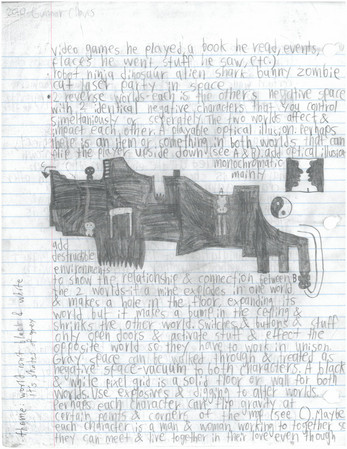 Gunnar Clovis
video games he played, a book he read, events,
places he went, stuff he saw, etc.)
robot ninja dinosaur alien shark bunny zombie
cat laser party in space
2 reverse worlds - each is the other's negative space
with 2 identical negative characters that you control
simultaneously or seperately. The two worlds affect &
impact each other. A playable optical illusion. Perhaps
there is an item or something in both worlds that can
flip the player upside down (see A & B). add optical illusion
monochromatic
mainly
add
destructible
environments
to show the relationship & connection between
the 2 worlds: if a mine explodes in one world
& makes a hole in the floor, expanding its
world but it makes a bump in the ceiling &
shrinks the other world. Switches & buttons & stuff
only open doors & activate stuff & effect the
opposite world so they have to work in unison.
Gray space can be walked through & treated as
negative space-vacuum to both characters. A black
& white pixel grid is a solid floor or wall for both
worlds. Use explosives & digging to alter worlds.
Perhaps each character can flip gravity at
certain points & corners of the map (see C). Maybe
each character is a man & woman working together so
they can meet & live together in their love even though
theme: world not black & white
it's shades of grey